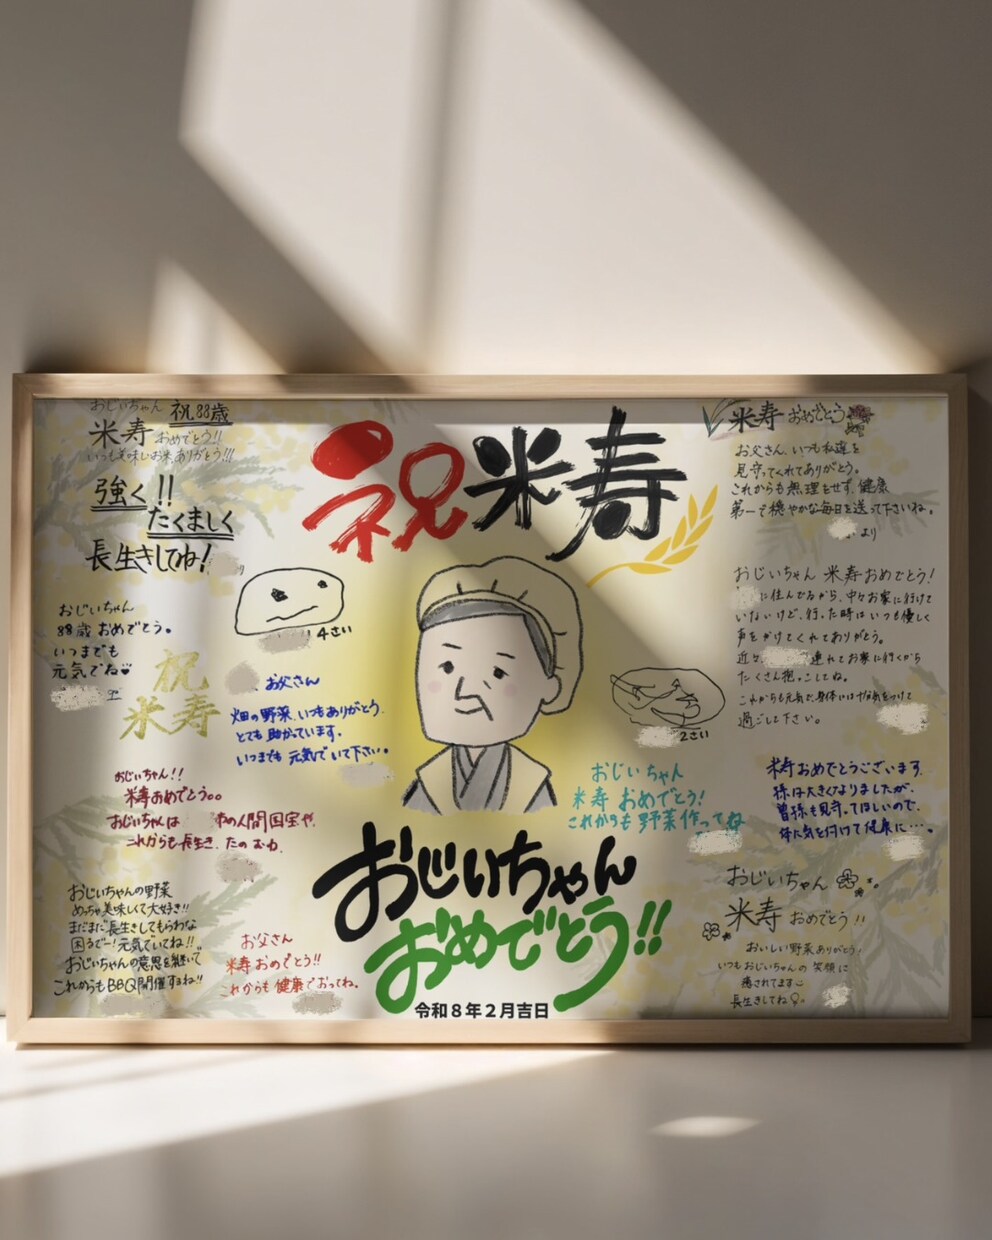 おじいちゃん 祝88歳
米寿 おめでとう!!
いつも美味しいお米ありがとう!!!
強く!!
たくましく
長生きしてね!
おじいちゃん
88歳 おめでとう。
いつまでも
元気でね
祝
米寿
4さい
お父さん
畑の野菜、いつもありがとう。
とても助かっています。
いつまでも 元気で いて下さい。
おじいちゃん!!
米寿おめでとう。。
おじいちゃんは
の人間国宝や。
これからも長生き、たのむわ。
おじいちゃんの野菜
めっちゃ美味しくて大好き!!
まだまだ長生きしてもらわな
困るでー!元気でいてね!!
おじいちゃんの意思を継いで
これからもBBQ開催するね!!
お父さん
米寿 おめでとう!!
れからも 健康で おってね。
祝米寿
おじいちゃん
おめでとう!!
令和8年2月吉日
2さい
おじいちゃん
米寿 おめでとう!
これからも 野菜作ってね
米寿 おめでとう
お父さん、いつも私達を
見守ってくれてありがとう。
これからも無理をせず、健康
第一で穏やかな毎日を送って下さいね。
より
おじいちゃん 米寿おめでとう!
に住んでるから、中々お家に行けて
いないけど、行った時はいつも優しく
声をかけてくれてありがとう。
近々 連れてお家に行くから
たくさん抱っこしてね。
これからも元気で、身体には気をつけて
過ごして下さい。
米寿おめでとうございます。
孫は大きくなりましたが、
曽孫も見守ってほしいので、
体に気を付けて健康に・・・。
おじいちゃん
米寿 おめでとう!!
おいしい野菜ありがとう!
いつもおじいちゃんの 笑顔に
癒されてます
長生きしてね